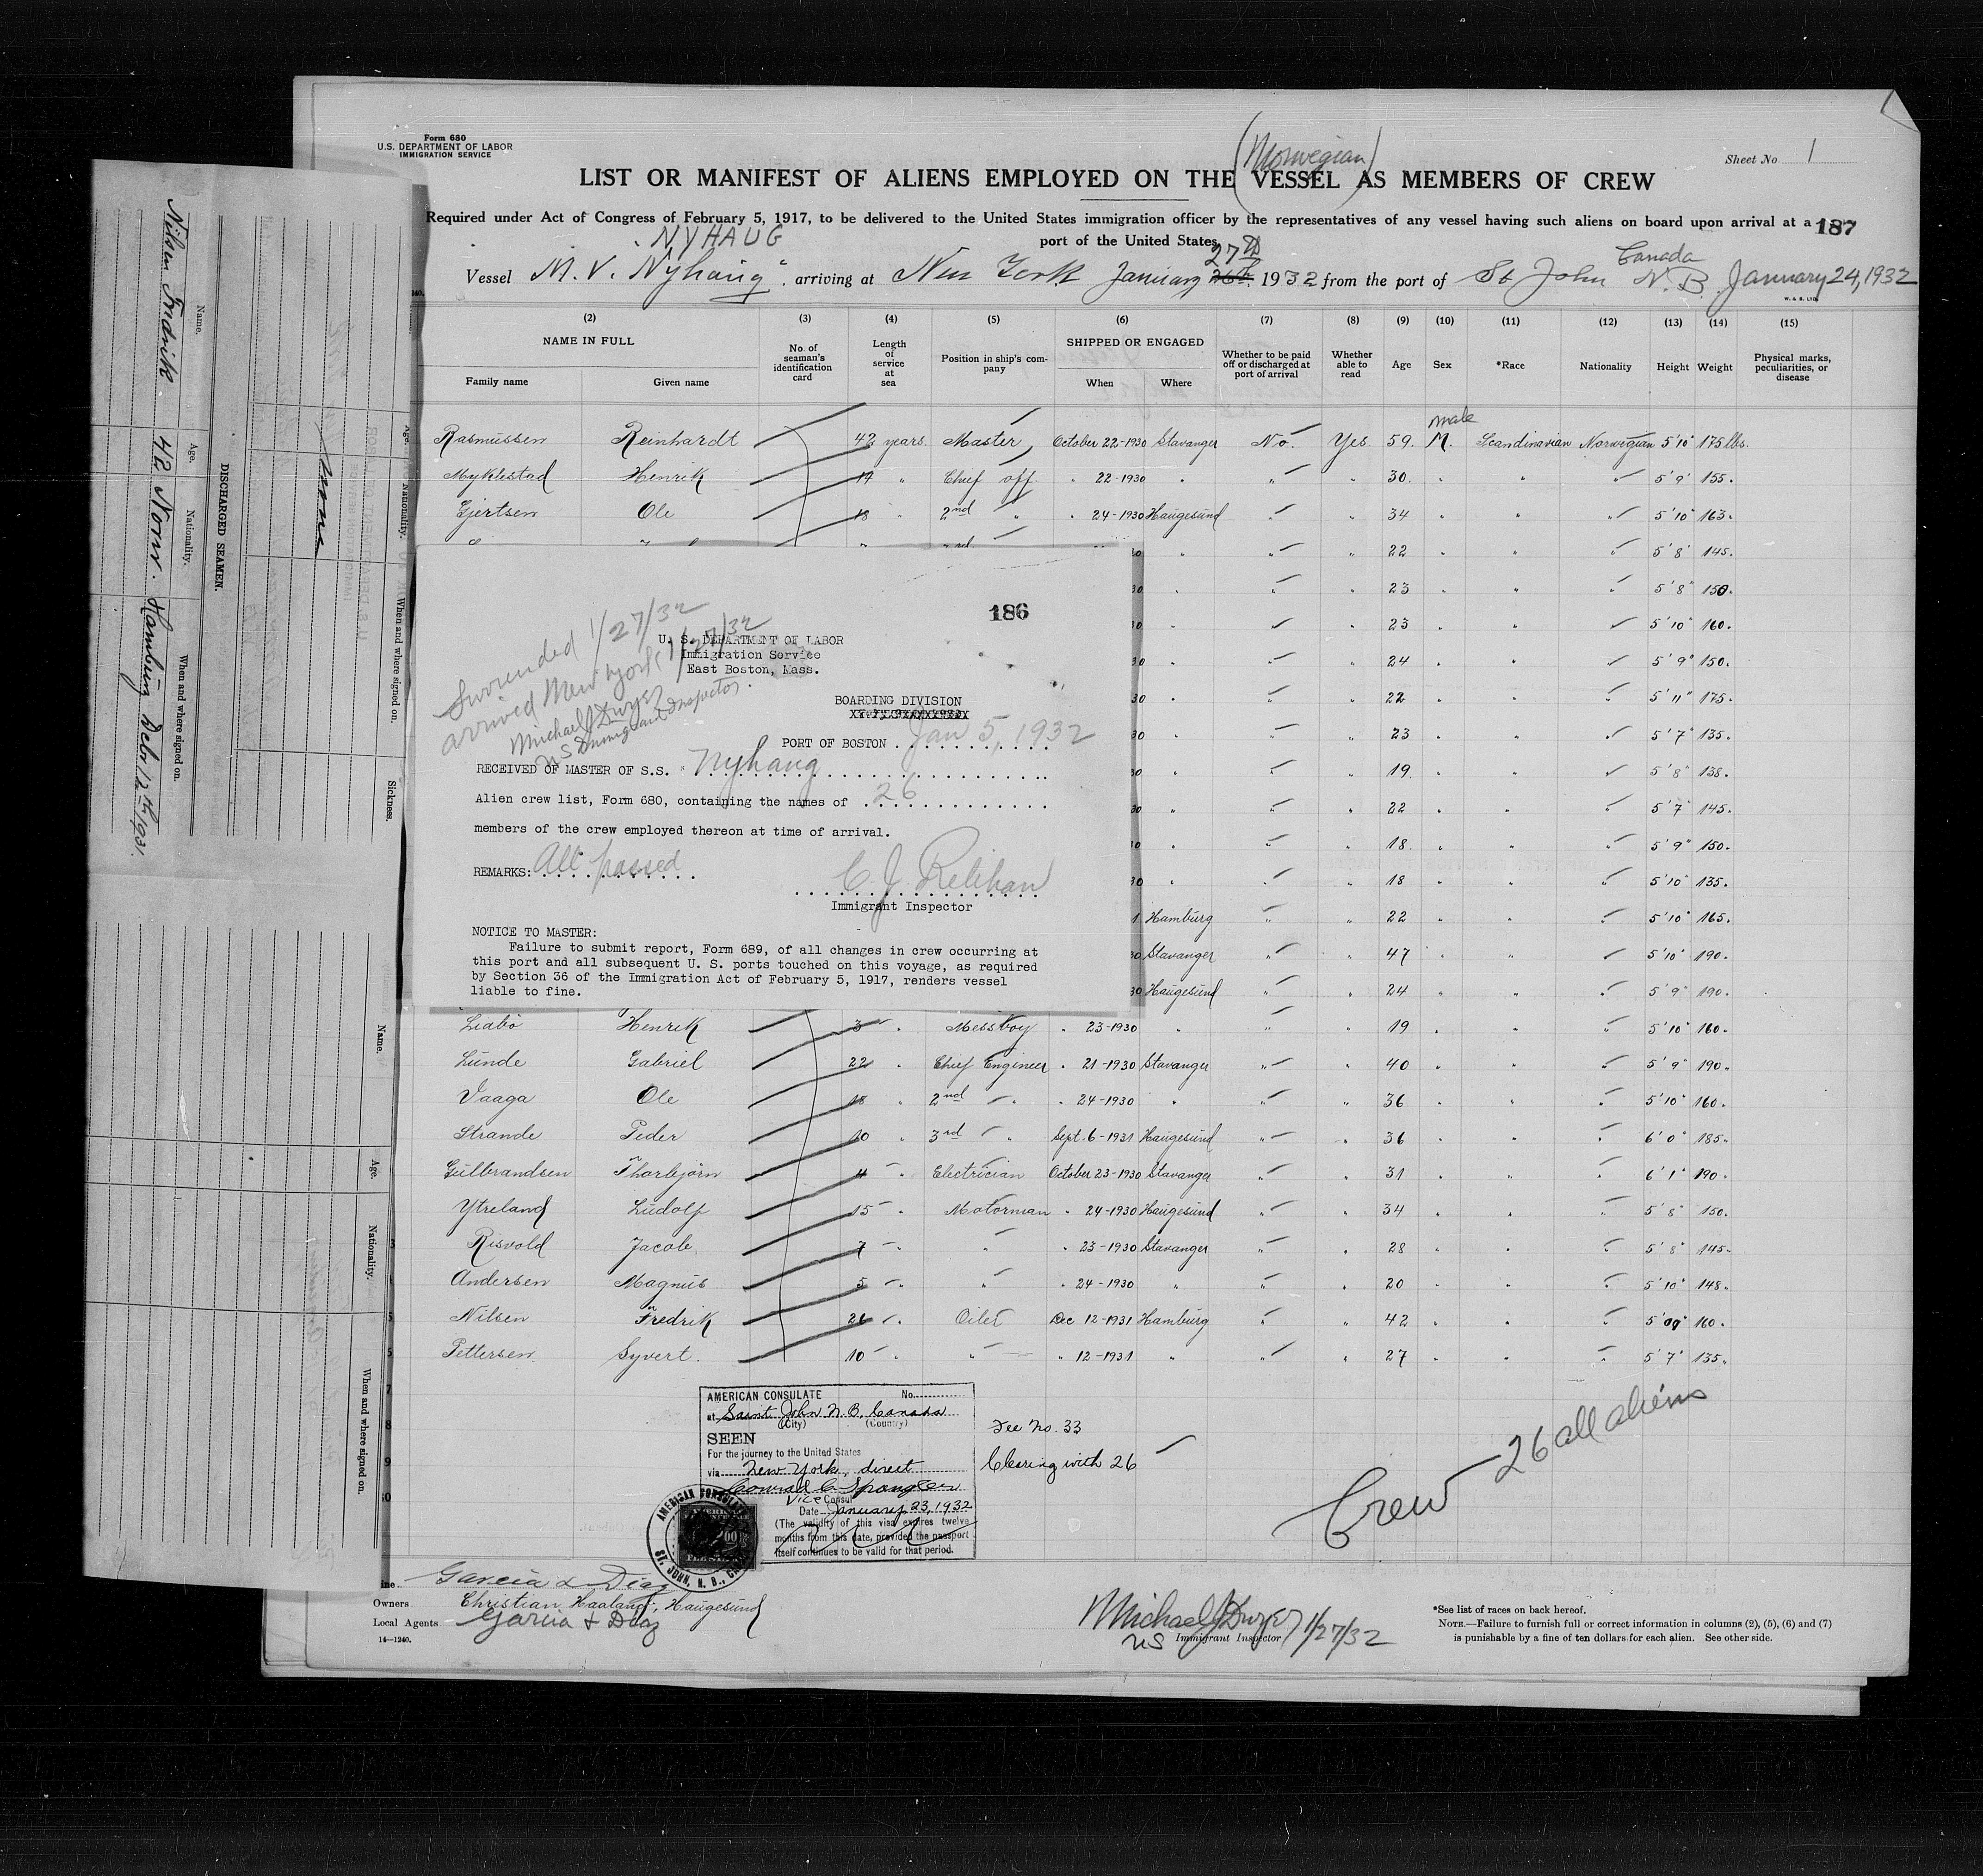 Form 680
U.S. DEPARTMENT OF LABOR
IMMIGRATION SERVICE
(Norwegian)
Sheet No 1
LIST OR MANIFEST OF ALIENS EMPLOYED ON THE VESSEL AS MEMBERS OF CREW
Required under Act of Congress of February 5, 1917, to be delivered to the United States immigration officer by the representatives of any vessel having such aliens on board upon arrival at a
port of the United States
187
NYHAUG
27th
Canada
Vessel M.V. "Nyhaug", arriving at New York January 26th, 1932 from the port of St John N.B. January 24, 1932
W. & B. LTD.
(2) (3) (4) (5) (6) (7) (8) (9) (10) (11) (12) (13) (14) (15)
NAME IN FULL
Family name Given name
No. of seaman's identification card
Length of service at sea
Position in ship's company
SHIPPED OR ENGAGED
When Where
Whether to be paid off or discharged at port of arrival
Whether able to read
Age Sex *Race Nationality Height Weight
Physical marks, peculiarities, or disease
male
Rasmussen Reinhardt 42 years. Master October 22-1930 Stavanger No. Yes 59. M. Scandinavian Norwegian 5'10" 175 lbs.
Myklestad Henrik 14 " Chief off. " 22-1930 " " " 30. " " " 5'9" 155.
Gjertsen Ole 18 " 2nd " " 24-1930 Haugesund " " 34 " " " 5'10" 163.
30 " " " 22 " " " 5'8" 145.
30 " " " 23 " " " 5'8" 150.
30 " 23 " " 5'10" 160.
30 " " " 24 " " 5'9" 150.
30 " " " 22 " " " 5'11" 175.
30 " " " 23 " " " 5'7" 135.
30 " " " 19. " " 5'8" 138.
30 " " " 22 " " " 5'7" 145.
30 " " " 18. " " " 5'9" 150.
30 " " " 18 " " " 5'10" 135.
1 Hamburg " " 22 " " " 5'10" 165.
30 Stavanger " " 47 " " 5'10" 190.
30 Haugesund " " 24 " " " 5'9" 190.
Liabö Henrik 3 " Messboy " 23-1930 " " " 19 " " " 5'10" 160.
Lunde Gabriel 22 " Chief Engineer " 21-1930 Stavanger " " 40 " " " 5'9" 190.
Vaaga Ole 18 " 2nd " " 24-1930 " " " 36 " " " 5'10" 160.
Strande Peder 10 " 3rd " Sept. 6-1931 Haugesund " " 36 " " " 6'0" 185.
Gulbrandsen Thorbjörn 4 " Electrician October 23-1930 Stavanger " " 31 " " " 6'1" 190.
Ytreland Ludolf 15 " Motorman " 24-1930 Haugesund " " 34 " " " 5'8" 150.
Risvold Jacob 7 " " " 23-1930 Stavanger " " 28 " " " 5'8" 145.
Andersen Magnus 5 " " " 24-1930 " " " 20 " " " 5'10" 148.
Nilsen Fredrik 26 " Oiler Dec 12-1931 Hamburg " " 42 " " " 160.
Pettersen Syvert. 10 " " " 12-1931 " " " 27 " " " 5'7" 135.
186
Surrended 1/27/32
arrived New York 1/27/32
Michael J Dwyer
US Immigrant Inspector.
U. S. DEPARTMENT OF LABOR
Immigration Service
East Boston, Mass.
BOARDING DIVISION
PORT OF BOSTON Jan 5, 1932
RECEIVED OF MASTER OF S.S. Nyhaug
Alien crew list, Form 680, containing the names of 26
members of the crew employed thereon at time of arrival.
REMARKS: All passed
C. J. Relihan
Immigrant Inspector
NOTICE TO MASTER:
Failure to submit report, Form 689, of all changes in crew occurring at
this port and all subsequent U. S. ports touched on this voyage, as required
by Section 36 of the Immigration Act of February 5, 1917, renders vessel
liable to fine.
AMERICAN CONSULATE No.
at Saint John N.B. Canada
(City) (Country)
SEEN
For the journey to the United States
via New York, direct
Conrad C. Spangler
Vice Consul
Date January 23, 1932
(The validity of this visa expires twelve
months from this date, provided the passport
itself continues to be valid for that period.
AMERICAN CONSULATE
ST. JOHN, N. B.,
Fee No. 33
Clearing with 26
Crew 26 all aliens
Garcia & Diaz
Owners Christian Haaland, Haugesund
Local Agents Garcia & Diaz
14—1240.
Michael J Dwyer 1/27/32
US Immigrant Inspector
*See list of races on back hereof.
NOTE.—Failure to furnish full or correct information in columns (2), (5), (6) and (7)
is punishable by a fine of ten dollars for each alien. See other side.
Name. Age. Nationality. When and where signed on.
Nilsen Fredrik 42 Norw. Hamburg Debr 12th 1931.
DISCHARGED SEAMEN.
Age. Nationality. When and where signed on. Sickness.
none
Name. Age. Nationality. When and where signed on.